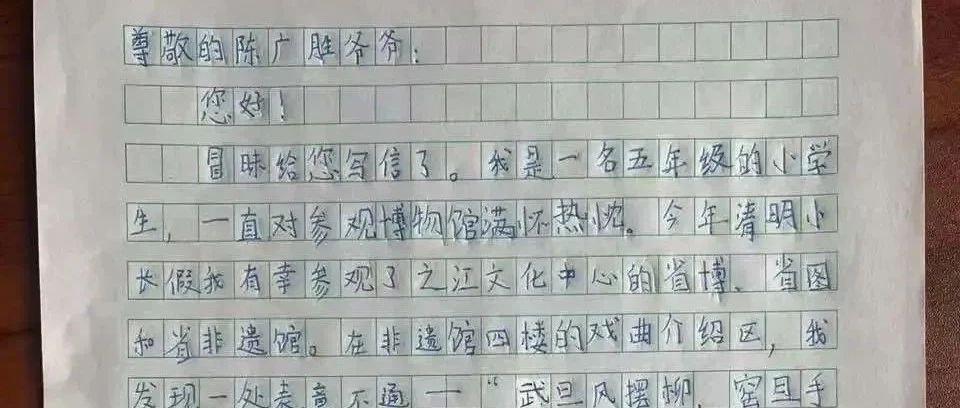 尊敬的陈广胜爷爷:
您好!
冒昧给您写信了。我是一名五年级的小学
生,一直对参观博物馆满怀热忱。今年清明小
长假我有幸参观了之江文化中心的省博、省图
和省非遗馆。在非遗馆四楼的戏曲介绍区,我
发现一处表意不通——“武旦风摆柳,窑旦手